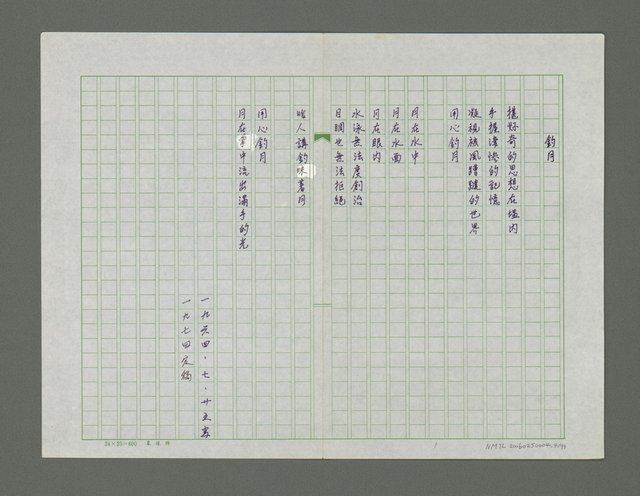 釣月
搜妳奇的思想在墻內
手握淒慘的記憶
凝視被風蹧蹋的世界
用心釣月
月在水中
月在水面
月在眼內
水泳無法度創治
目睭也無法拒絕
啥人講釣啉著月
用心釣月
月在掌中流出滿手的光
一九六四・七・廿五寫
一九七四定稿
24×25=600
1